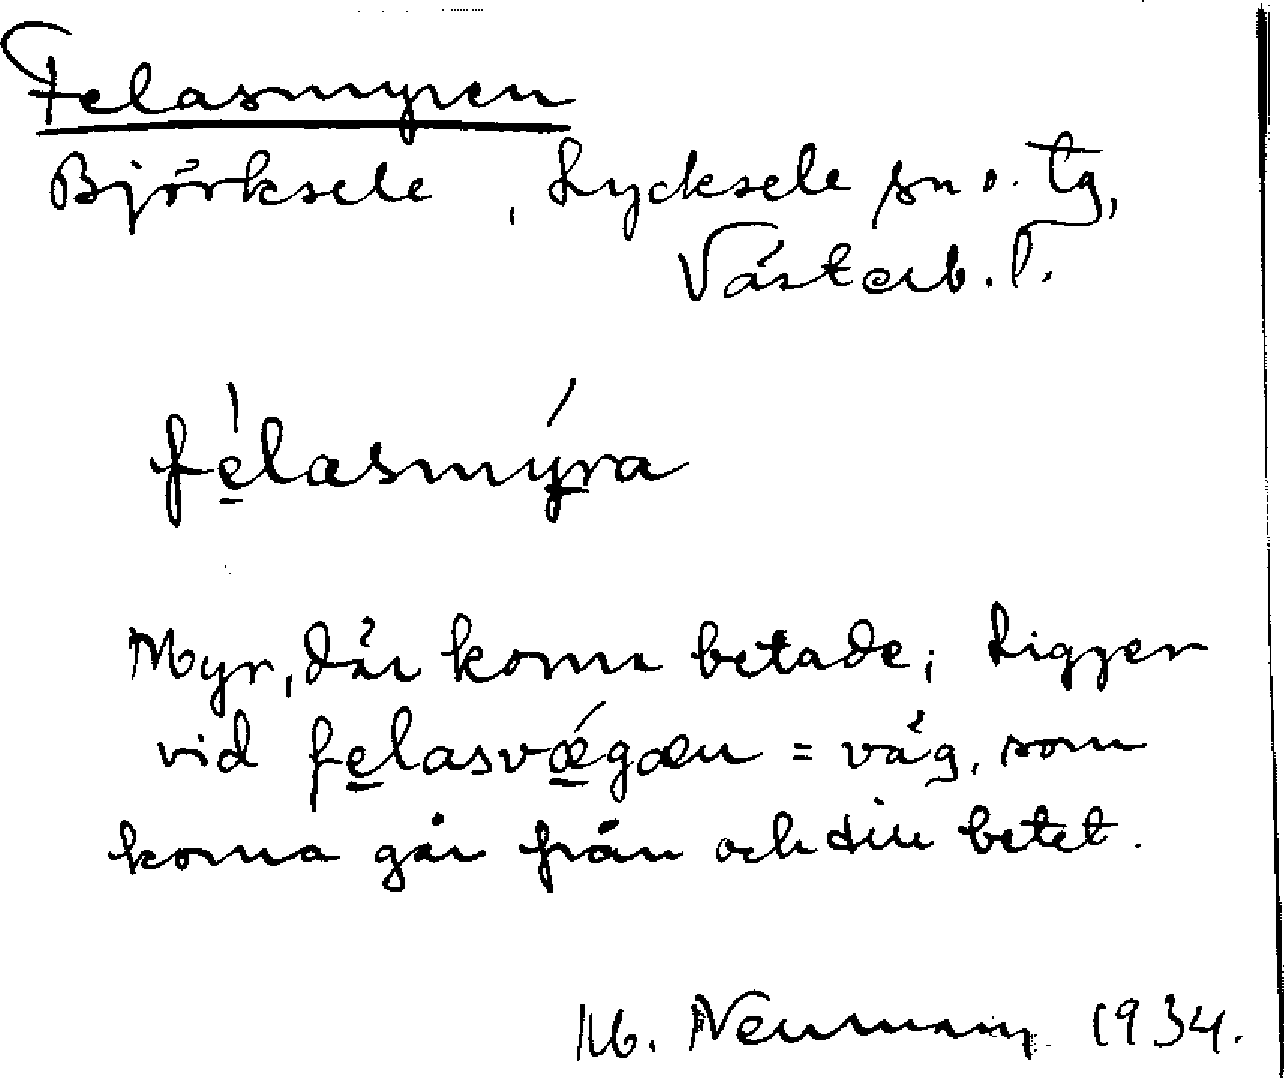 Felasmyren
Björksele, Lycksele sn o. tg,
Västerb. l.
fé̱lasmý̱ra
Myr, där korna betade; ligger
vid fe̱lasvǽ̱gæn = väg, som
korna går från och till betet.
M. Neuman 1934.